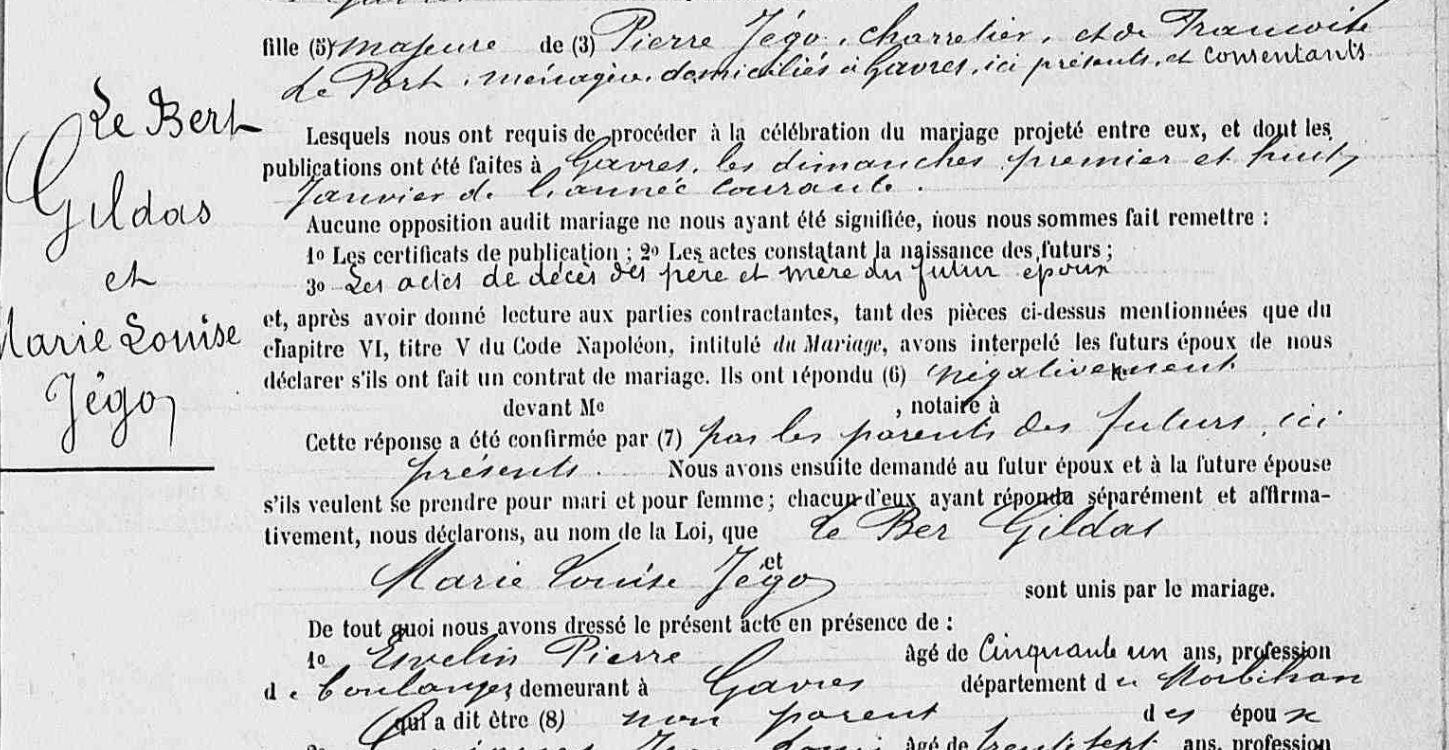 fille (5) majeure de (3) Pierre Jégo, charretier, et de Francoise
Le Port, ménagère, domiciliés à Gavres, ici présents, et consentants
Le Bert
Gildas
et
Marie Louise
Jégo
Lesquels nous ont requis de procéder à la célébration du mariage projeté entre eux, et dont les
publications ont été faites à Gavres, les dimanches premier et huit
Janvier de l'année courante.
Aucune opposition audit mariage ne nous ayant été signifiée, nous nous sommes fait remettre :
1º Les certificats de publication ; 2º Les actes constatant la naissance des futurs ;
3º Les actes de décès des père et mère du futur époux
et, après avoir donné lecture aux parties contractantes, tant des pièces ci-dessus mentionnées que du
chapitre VI, titre V du Code Napoléon, intitulé du Mariage, avons interpelé les futurs époux de nous
déclarer s'ils ont fait un contrat de mariage. Ils ont répondu (6) négativement
devant Me , notaire à
Cette réponse a été confirmée par (7) par les parents des futurs, ici
présents. Nous avons ensuite demandé au futur époux et à la future épouse
s'ils veulent se prendre pour mari et pour femme ; chacun d'eux ayant répondu séparément et affirma-
tivement, nous déclarons, au nom de la Loi, que Le Ber Gildas
et
Marie Louise Jégo sont unis par le mariage.
De tout quoi nous avons dressé le présent acte en présence de :
1º Esvelin Pierre âgé de Cinquante un ans, profession
de boulanger demeurant à Gavres département du Morbihan
qui a dit être (8) non parent des époux
Jean Louis âgé de trente sept ans, profession